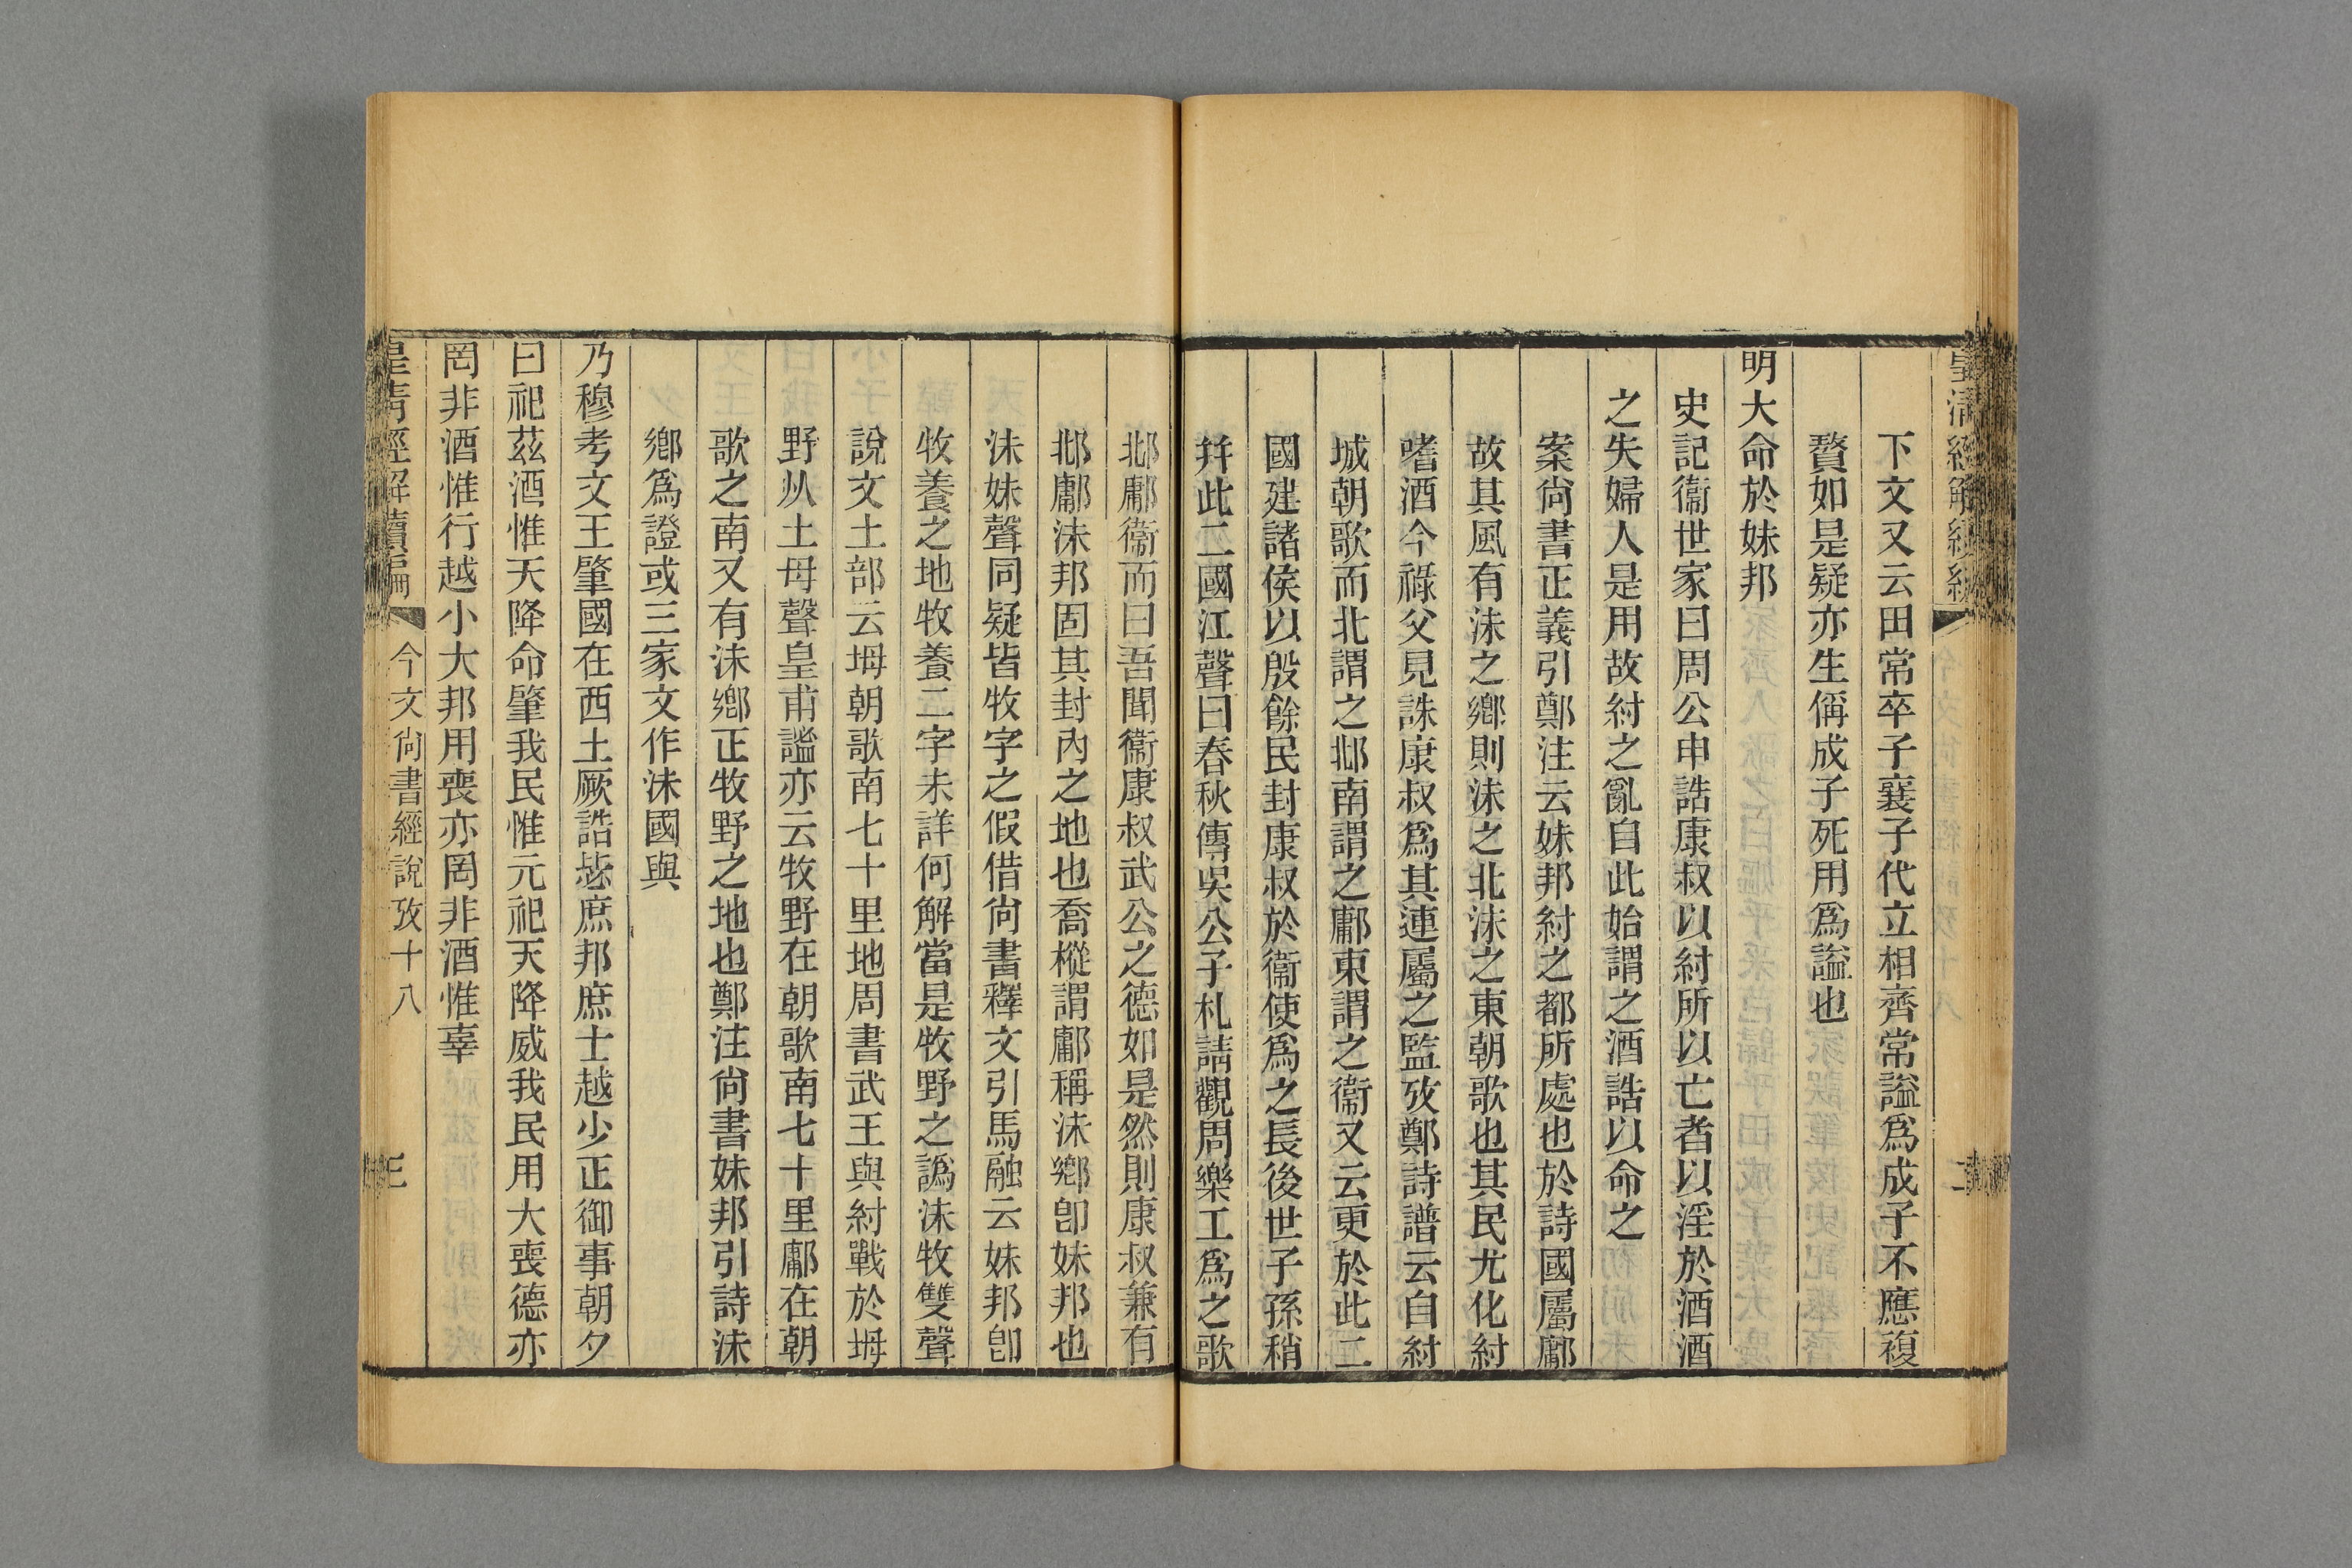 下文又云田常卒子襄子代立相齊常謚爲成子不應複
贅如是疑亦生偁成子死用爲謚也
明大命於妹邦
史記衞世家曰周公申誥康叔以紂所以亡者以淫於酒酒
之失婦人是用故紂之亂自此始謂之酒誥以命之
案尙書正義引鄭注云妹邦紂之都所處也於詩國屬鄘
故其風有沬之鄕則沬之北沬之東朝歌也其民尤化紂
嗜酒今祿父見誅康叔爲其連屬之監攷鄭詩譜云自紂
城朝歌而北謂之邶南謂之鄘東謂之衞又云更於此二
國建諸侯以殷餘民封康叔於衞使爲之長後世子孫稍
幷此二國江聲曰春秋傳吳公子札請觀周樂工爲之歌
邶鄘衞而曰吾聞衞康叔武公之德如是然則康叔兼有
邶鄘沬邦固其封內之地也喬樅謂鄘稱沬鄕卽妹邦也
沬妹聲同疑皆牧字之假借尙書釋文引馬融云妹邦卽
牧養之地牧養二字未詳何解當是牧野之譌沬牧雙聲
說文土部云坶朝歌南七十里地周書武王與紂戰於坶
野从土母聲皇甫謚亦云牧野在朝歌南七十里鄘在朝
歌之南又有沬鄕正牧野之地也鄭注尙書妹邦引詩沬
鄕爲證或三家文作沬國與
乃穆考文王肇國在西土厥誥毖庶邦庶士越少正御事朝夕
曰祀茲酒惟天降命肇我民惟元祀天降威我民用大喪德亦
罔非酒惟行越小大邦用喪亦罔非酒惟辜
皇淸經解續編
今文尙書經說攷十八
三